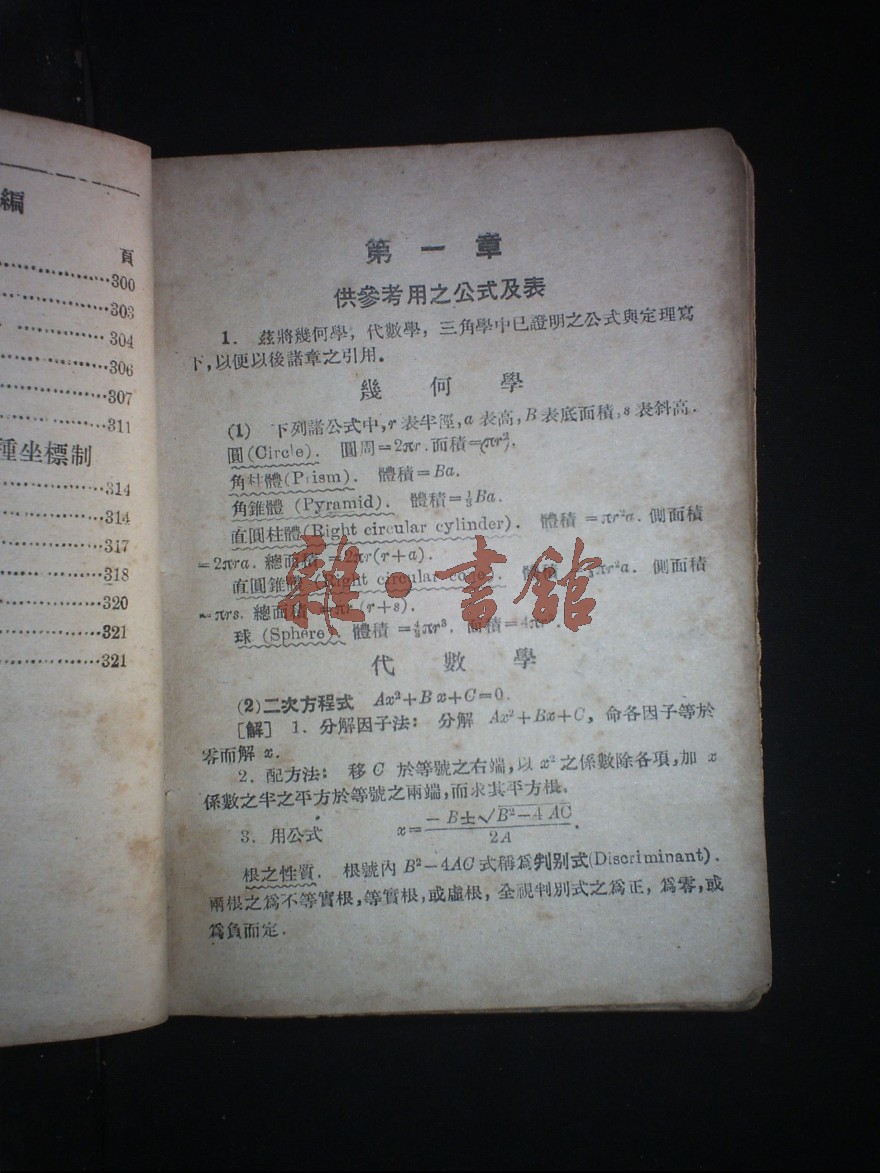 編
頁
300
303
304
306
307
311
種坐標制
314
314
317
318
320
321
321
第一章
供參考用之公式及表
1. 茲將幾何學，代數學，三角學中已證明之公式與定理寫
下，以便以後諸章之引用。
幾何學
(1) 下列諸公式中，r 表半徑，a 表高，B 表底面積，s 表斜高.
圓(Circle). 圓周=2πr. 面積=πr².
角柱體(Prism). 體積=Ba.
角錐體 (Pyramid). 體積=⅓Ba.
直圓柱體(Right circular cylinder). 體積=πr²a. 側面積
=2πra. 總面積=2πr(r+a).
直圓錐體(Right circular cone). 體積=⅓πr²a. 側面積
=πrs. 總面積=πr(r+s).
球 (Sphere). 體積=4/3πr³. 面積=4πr².
代數學
(2)二次方程式 Ax²+Bx+C=0.
[解] 1. 分解因子法： 分解 Ax²+Bx+C，命各因子等於
零而解 x.
2. 配方法： 移 C 於等號之右端，以 x² 之係數除各項，加 x
係數之半之平方於等號之兩端，而求其平方根。
3. 用公式 x=(-B±√(B²-4AC))/2A.
根之性質. 根號內 B²-4AC 式稱爲判別式(Discriminant).
兩根之爲不等實根，等實根，或虛根，全視判別式之爲正，爲零，或
爲負而定.
雜·書館